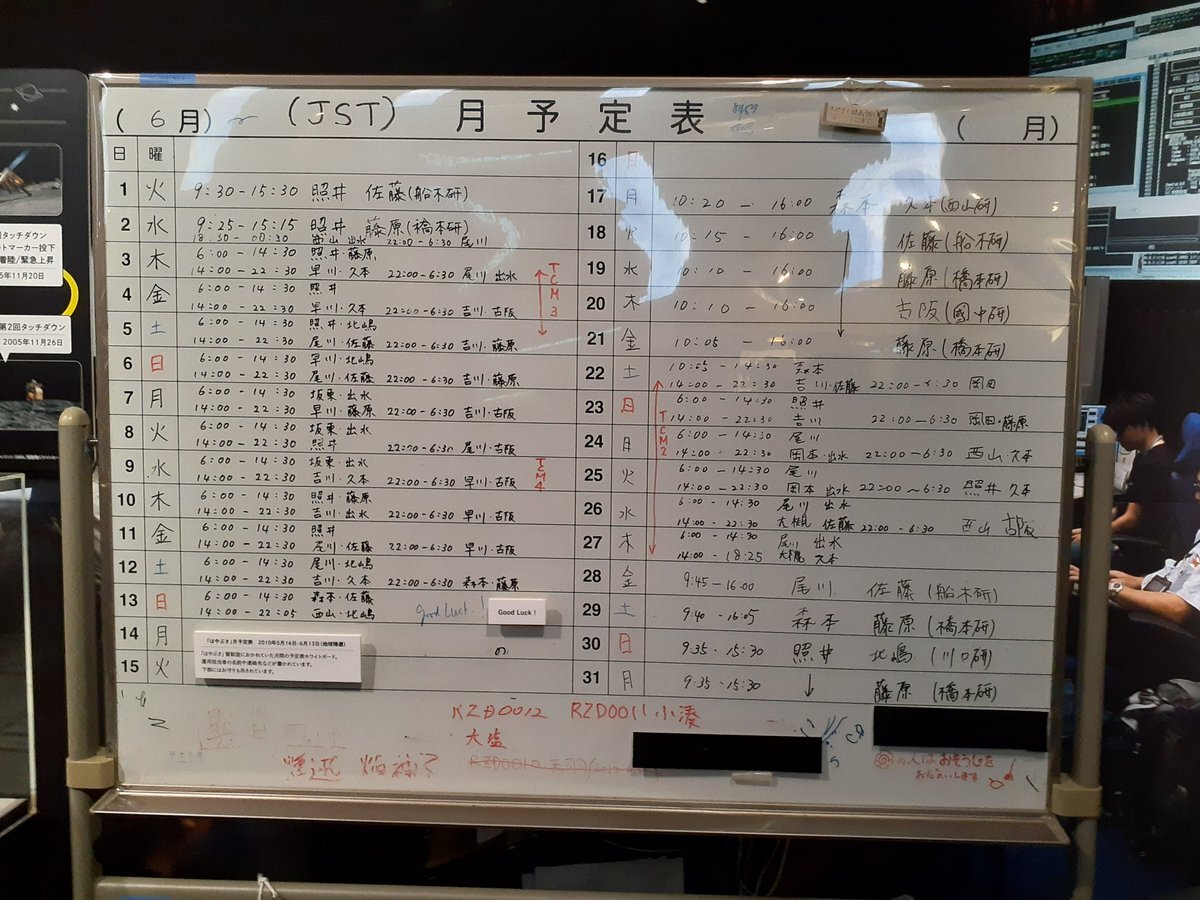 (6月) (JST) 月予定表 (月)
日 曜
1 火 9:30-15:30 照井 佐藤(船木研)
2 水 9:25-15:15 照井 藤原(橋本研)
西山 出水 22:00-6:30 尾川
3 木 6:00-14:30 照井・藤原
14:00-22:30 早川・久本 22:00-6:30 尾川 出水
4 金 6:00-14:30 照井
14:00-22:30 早川・久本 22:00-6:30 吉川・古阪
5 土 6:00-14:30 照井・北嶋
14:00-22:30 尾川・佐藤 22:00-6:30 吉川・藤原
TCM3
6 日 6:00-14:30 早川・北嶋
14:00-22:30 尾川・佐藤 22:00-6:30 吉川・藤原
7 月 6:00-14:30 坂東・出水
14:00-22:30 早川・藤原 22:00-6:30 吉川・古阪
8 火 6:00-14:30 坂東・出水
14:00-22:30 照井 22:00-6:30 尾川・古阪
9 水 6:00-14:30 坂東・出水
14:00-22:30 吉川・久本 22:00-6:30 早川・古阪
TCM4
10 木 6:00-14:30 照井・藤原
14:00-22:30 吉川・出水 22:00-6:30 早川・古阪
11 金 6:00-14:30 照井
14:00-22:30 尾川・佐藤 22:00-6:30 早川・古阪
12 土 6:00-14:30 尾川・北嶋
14:00-22:30 吉川・久本 22:00-6:30 森本・藤原
13 日 6:00-14:30 森本・佐藤
14:00-22:05 西山・北嶋 Good Luck!
Good Luck!
14 月
の
15 火
「はやぶさ」月予定表 2010年5月16日-6月13日(地球帰還)
「はやぶさ」管制室におかれていた月間の予定表ホワイトボード。
運用担当者の名前や連絡先などが書かれています。
下部にはお守りも吊されています。
16 日
17 月 10:20-16:00 森本 久本(西山研)
18 火 10:15-16:00 佐藤(船木研)
19 水 10:10-16:00 藤原(橋本研)
20 木 10:10-16:00 古阪(國中研)
21 金 10:05-16:00 藤原(橋本研)
22 土 10:05-14:30 森本
14:00-22:30 吉川・佐藤 22:00-6:30 岡田
23 日 6:00-14:30 照井
14:00-22:30 吉川 22:00-6:30 岡田・藤原
24 月 6:00-14:30 尾川
14:00-22:30 岡本・出水 22:00-6:30 西山 久本
TCM2
25 火 6:00-14:30 尾川
14:00-22:30 岡本 出水 22:00~6:30 照井 久本
26 水 6:00-14:30 尾川 出水
14:00-22:30 大槻 佐藤 22:00-6:30 西山 古阪
27 木 6:00-14:30 尾川 出水
14:00-18:25 大槻 久本
28 金 9:45-16:00 尾川 佐藤(船木研)
29 土 9:40-16:05 森本 藤原(橋本研)
30 日 9:35-15:30 照井 北嶋(川口研)
31 月 9:35-15:30 藤原(橋本研)
RZD0012 RZD0011 小湊
大塩
RZD0010
の人はおそうじを
おねがいします
タッチダウン
トマーカー投下
着陸/緊急上昇
5年11月20日
第2回タッチダウン
2005年11月26日